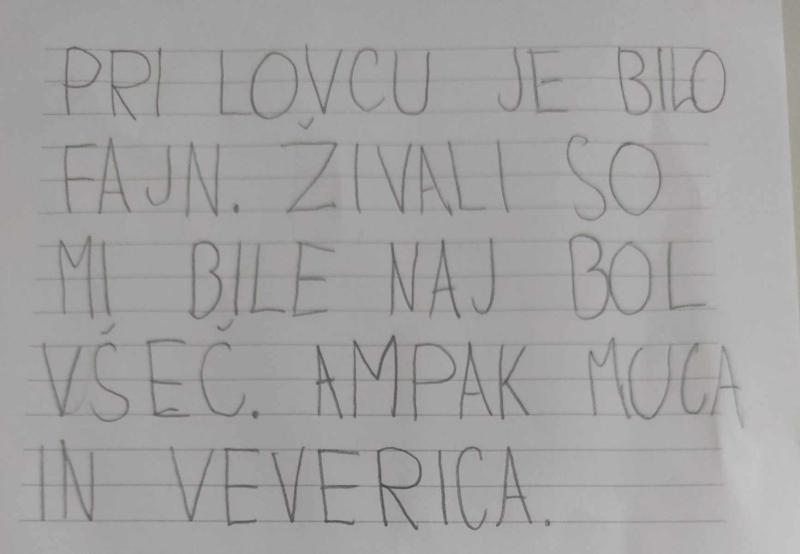 PRI LOVCU JE BILO
FAJN. ŽIVALI SO
MI BILE NAJ BOL
VŠEČ. AMPAK MUCA
IN VEVERICA.